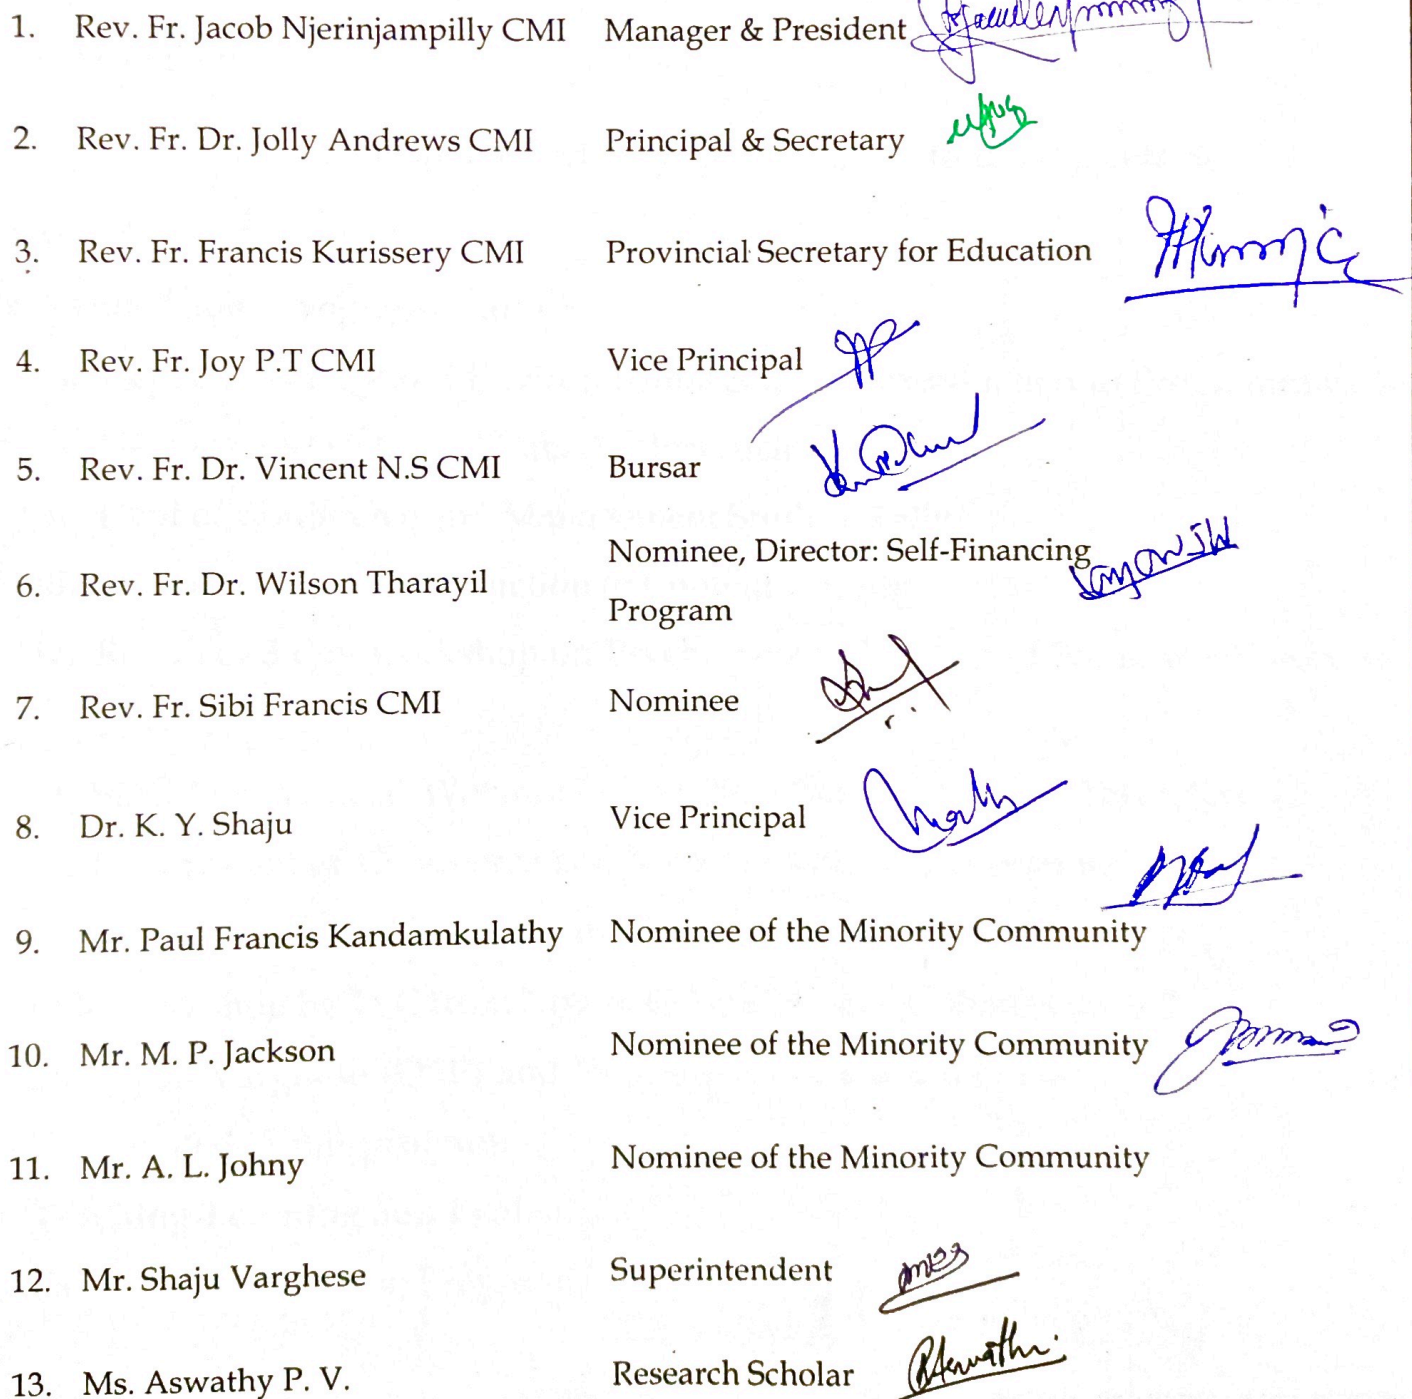 1. Rev. Fr. Jacob Njerinjampilly CMI Manager & President
2. Rev. Fr. Dr. Jolly Andrews CMI Principal & Secretary
3. Rev. Fr. Francis Kurissery CMI Provincial Secretary for Education
4. Rev. Fr. Joy P.T CMI Vice Principal
5. Rev. Fr. Dr. Vincent N.S CMI Bursar
Nominee, Director: Self-Financing
6. Rev. Fr. Dr. Wilson Tharayil
Program
7. Rev. Fr. Sibi Francis CMI Nominee
8. Dr. K. Y. Shaju Vice Principal
9. Mr. Paul Francis Kandamkulathy Nominee of the Minority Community
10. Mr. M. P. Jackson Nominee of the Minority Community
11. Mr. A. L. Johny Nominee of the Minority Community
12. Mr. Shaju Varghese Superintendent
13. Ms. Aswathy P. V. Research Scholar